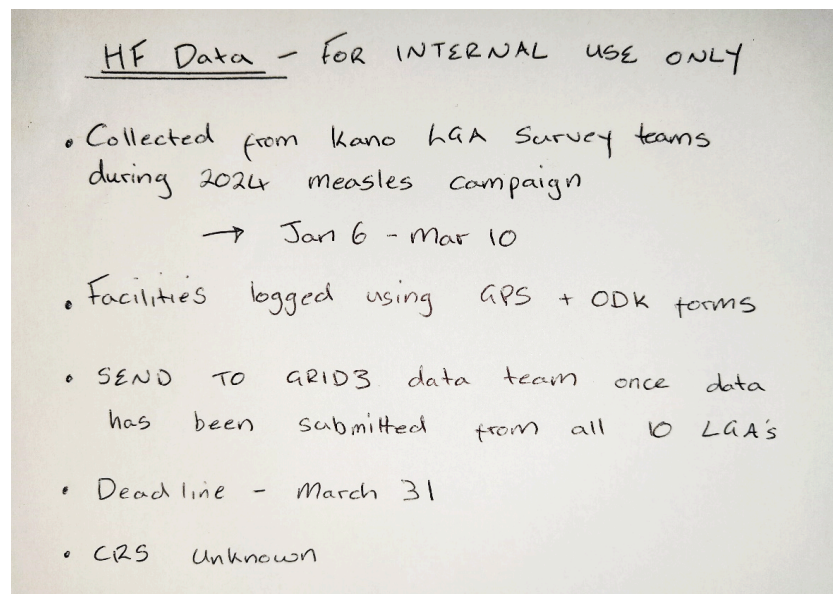 HF Data - FOR INTERNAL USE ONLY
• Collected from Kano LGA Survey teams
during 2024 measles campaign
→ Jan 6 - Mar 10
• Facilities logged using GPS + ODK forms
• SEND TO GRID3 data team once data
has been submitted from all 10 LGA's
• Deadline - March 31
• CRS Unknown